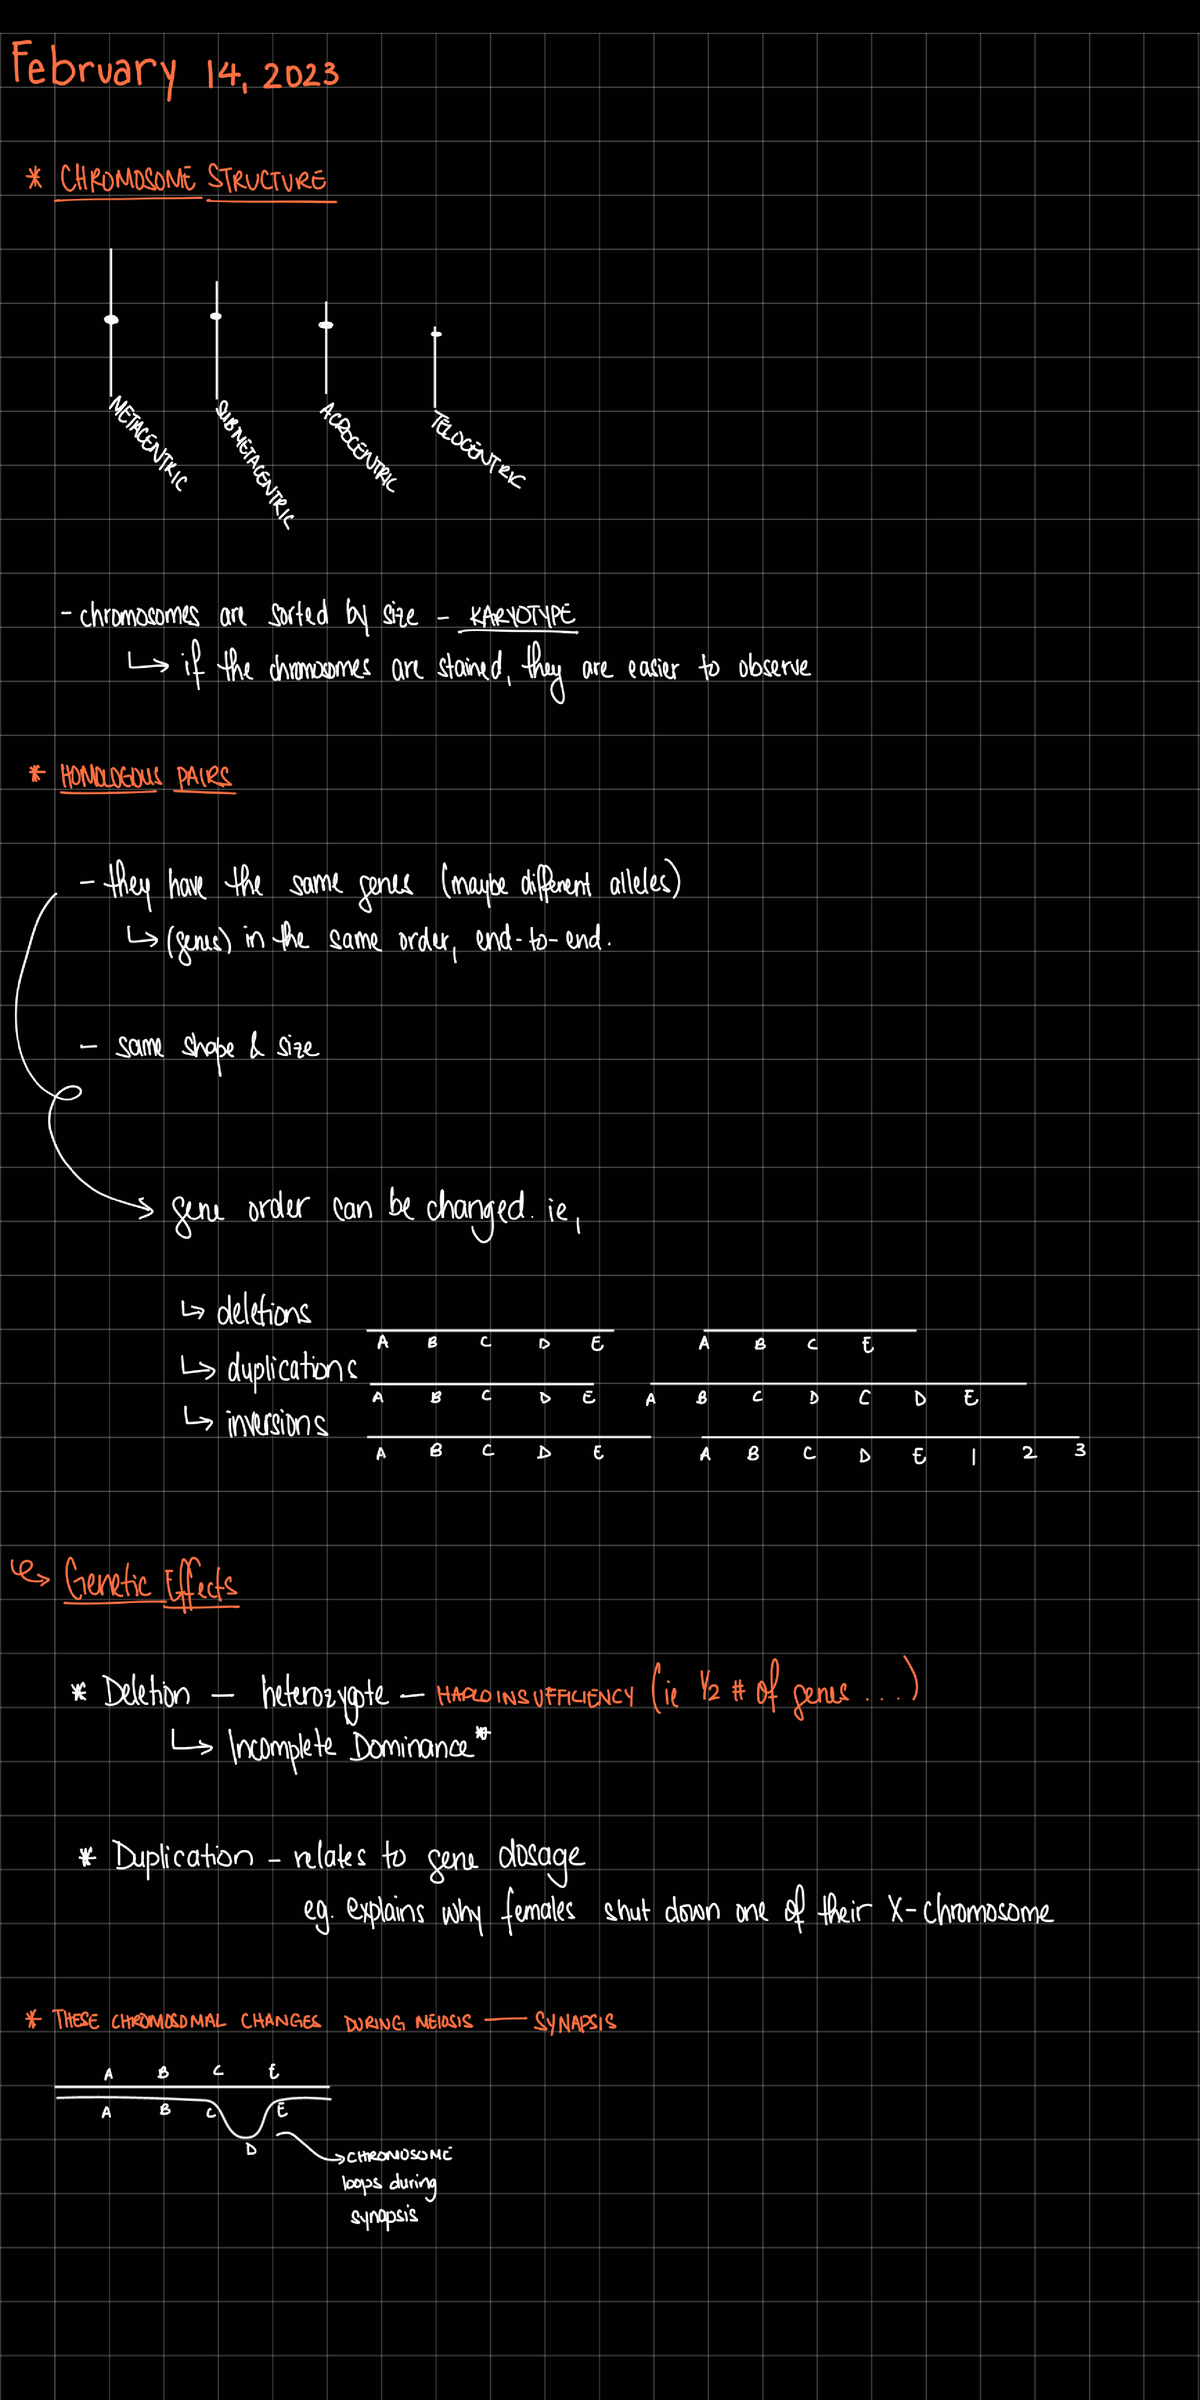 February 14, 2023
* CHROMOSOME STRUCTURE
METACENTRIC
SUBMETACENTRIC
ACROCENTRIC
TELOCENTRIC
- chromosomes are sorted by size - KARYOTYPE
↳ if the chromosomes are stained, they are easier to observe
* HOMOLOGOUS PAIRS
- they have the same genes (maybe different alleles)
↳ (genes) in the same order, end-to-end.
- same shape & size
→ gene order can be changed. ie,
↳ deletions A B C D E A B C E
↳ duplications A B C D E A B C D C D E
↳ inversions A B C D E A B C D E 1 2 3
↳ Genetic Effects
* Deletion - heterozygote - HAPLOINSUFFICIENCY (ie 1/2 # of genes ...)
↳ Incomplete Dominance*
* Duplication - relates to gene dosage
eg. explains why females shut down one of their X-chromosome
* THESE CHROMOSOMAL CHANGES DURING MEIOSIS — SYNAPSIS
A B C E
A B C E
D
→ CHROMOSOME
loops during
synapsis